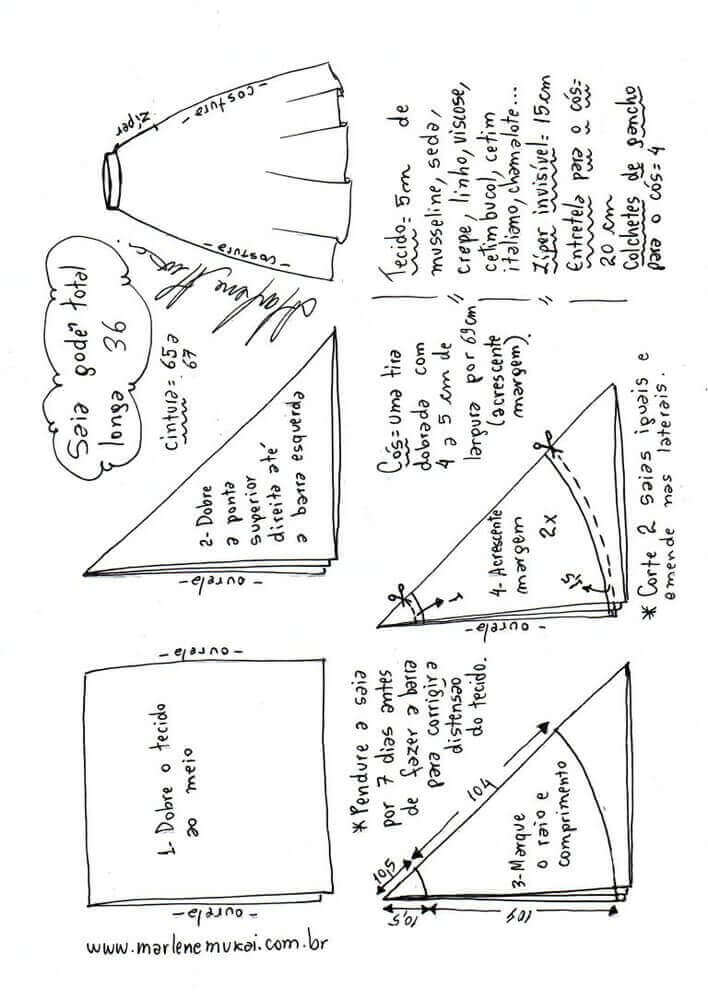 Saia godê total
longa 36
cintura = 65 a
67
Zíper
- costura -
- costura -
- ourela -
1- Dobre o tecido
ao meio
- ourela -
- ourela -
2- Dobre
a ponta
superior
direita até
a barra esquerda
www.marlenemukai.com.br
* Pendure a saia
por 7 dias antes
de fazer a barra
para corrigir a
distensão
do tecido.
10,5
104
10,5
104
3- Marque
o raio e
comprimento
Cós = uma tira
dobrada com
4 a 5 cm de
largura por 69 cm
(acrescente
margem).
- ourela -
4- Acrescente
margem
2x
1
1,5
* Corte 2 saias iguais e
emende nas laterais.
Tecido = 5m de
musseline, seda,
crepe, linho, viscose,
cetim bucol, cetim
italiano, chamalote...
Zíper invisível = 15 cm
Entretela para o cós =
20 cm
Colchetes de gancho
para o cós = 4